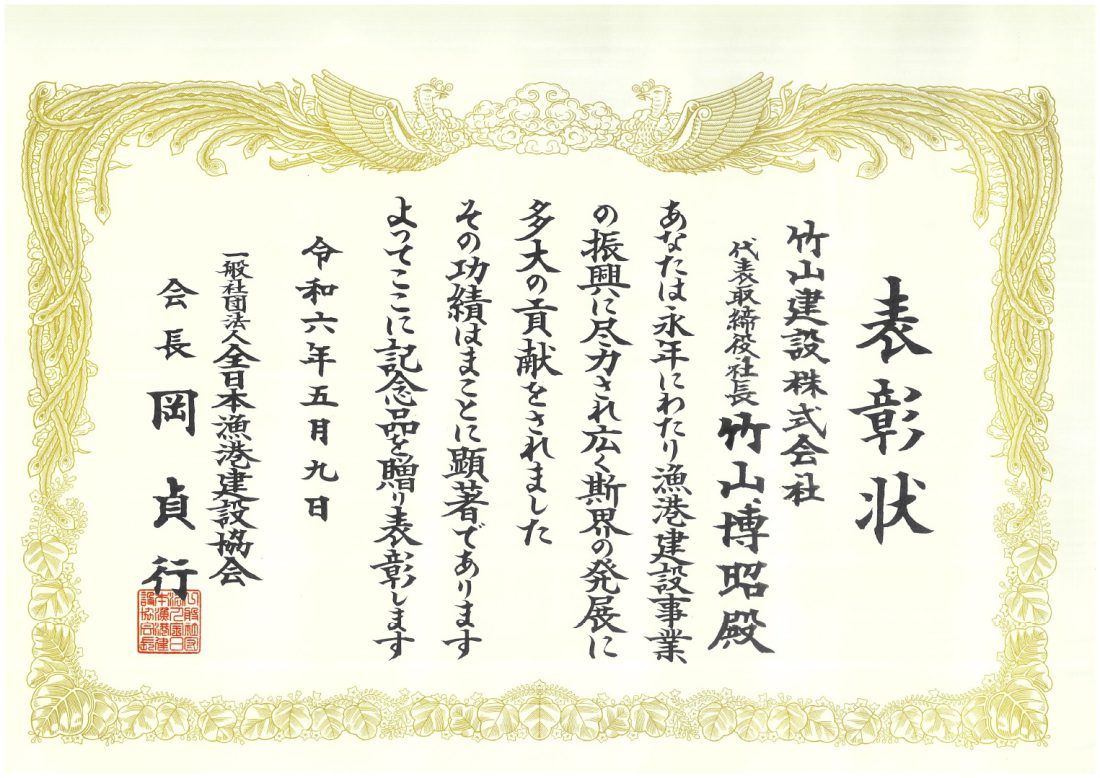 表彰状
竹山建設株式会社
代表取締役社長 竹山博昭殿
あなたは永年にわたり漁港建設事業
の振興に尽力され広く斯界の発展に
多大の貢献をされました
その功績はまことに顕著であります
よってここに記念品を贈り表彰します
令和六年五月九日
一般社団法人全日本漁港建設協会
会長 岡貞行